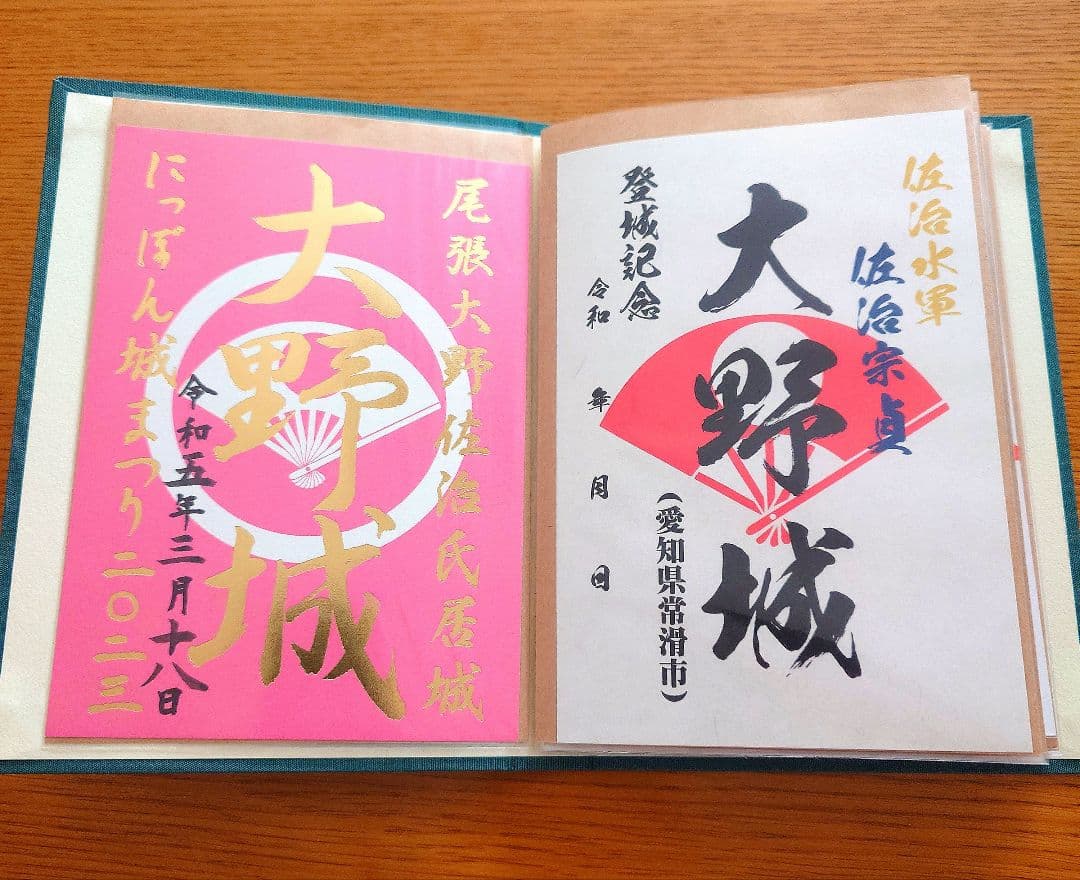 尾張大野佐治氏居城
大野城
令和五年三月十八日
にっぽん城まつり二〇二三
佐治水軍
佐治宗貞
大野城
(愛知県常滑市)
登城記念
令和 年 月 日